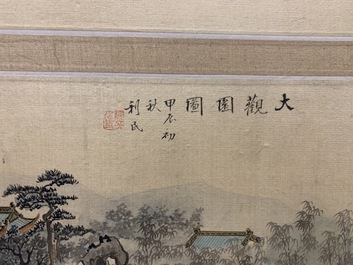 大觀園圖
甲辰初
秋
利民